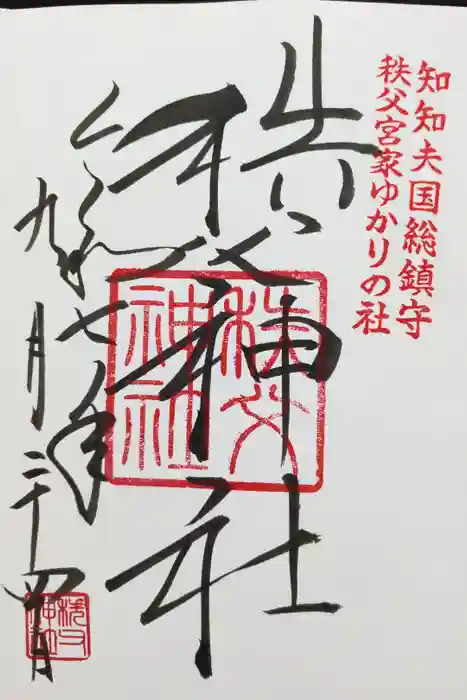 知知夫国総鎮守
秩父宮家ゆかりの社
秩父神社
秩父
神社
令和七年
九月二十四日
秩父
神社